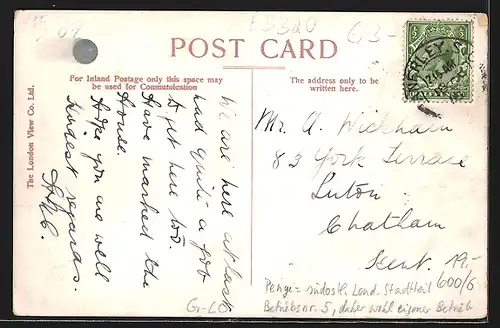 25
07
E3320
63-
POST CARD
For Inland Postage only this space may
be used for Communication
The address only to be
written here.
The London View Co. Ltd.
We are here at last
had quite a job
to get here too.
Have marked the
House.
Hope you are well
Kindest regards.
Mr A. Wickham
83 York Terrace
Luton
Chatham
Kent.
19.-
600/6
Penge = südostl. Lond. Stadtteil
Betriebsnr. 5, daher wohl eigener Betrieb
G-LO